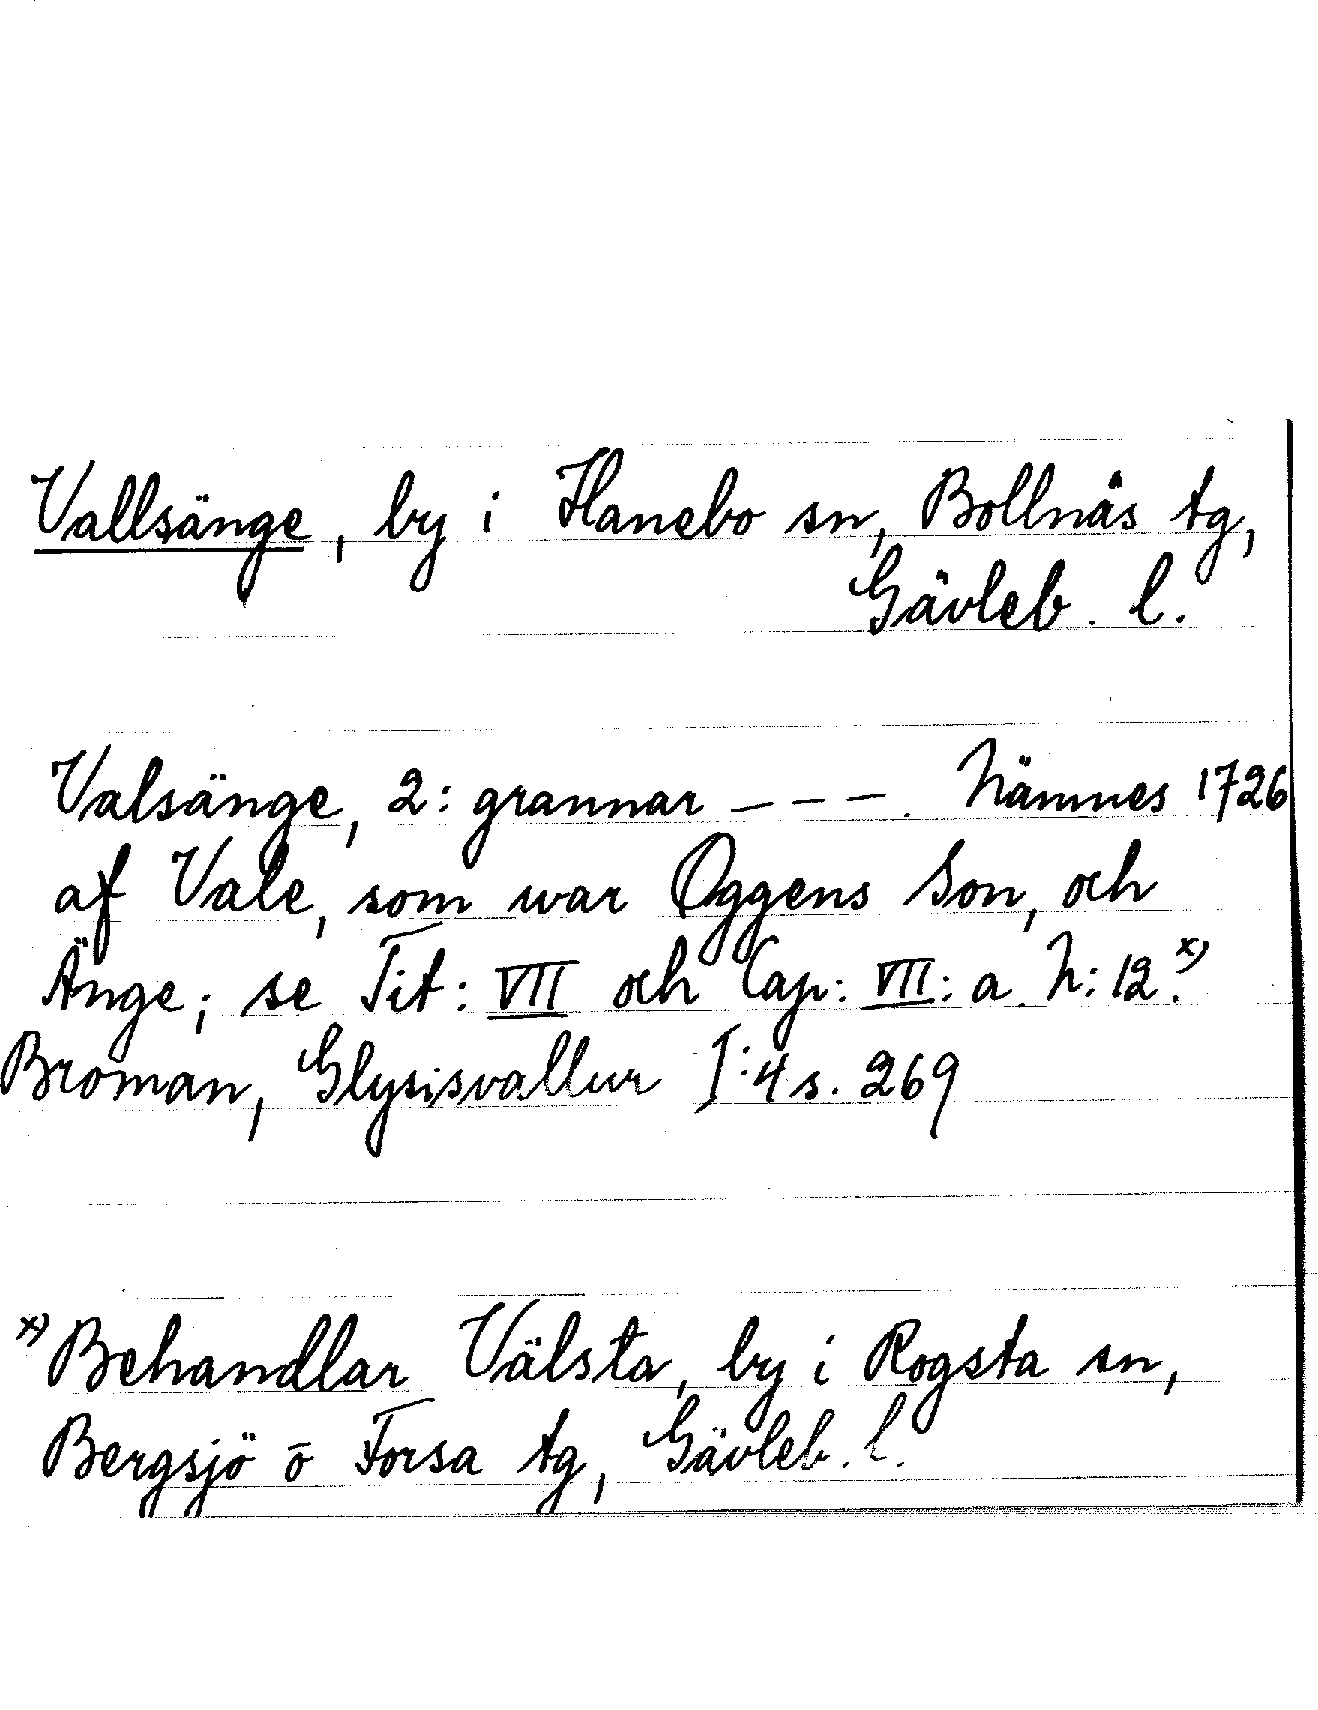 Vallsänge, by i Hanebo sn, Bollnäs tg,
Gävleb. l.
Valsänge, 2: grannar – – –. Nämnes 1726
af Vale, som war Oggens Son, och
Änge; se Tit: VII och Cap: VII: a N: 12.x)
Broman, Glysisvallur I:4 s. 269
x) Behandlar Välsta, by i Rogsta sn,
Bergsjö o Forsa tg, Gävleb. l.